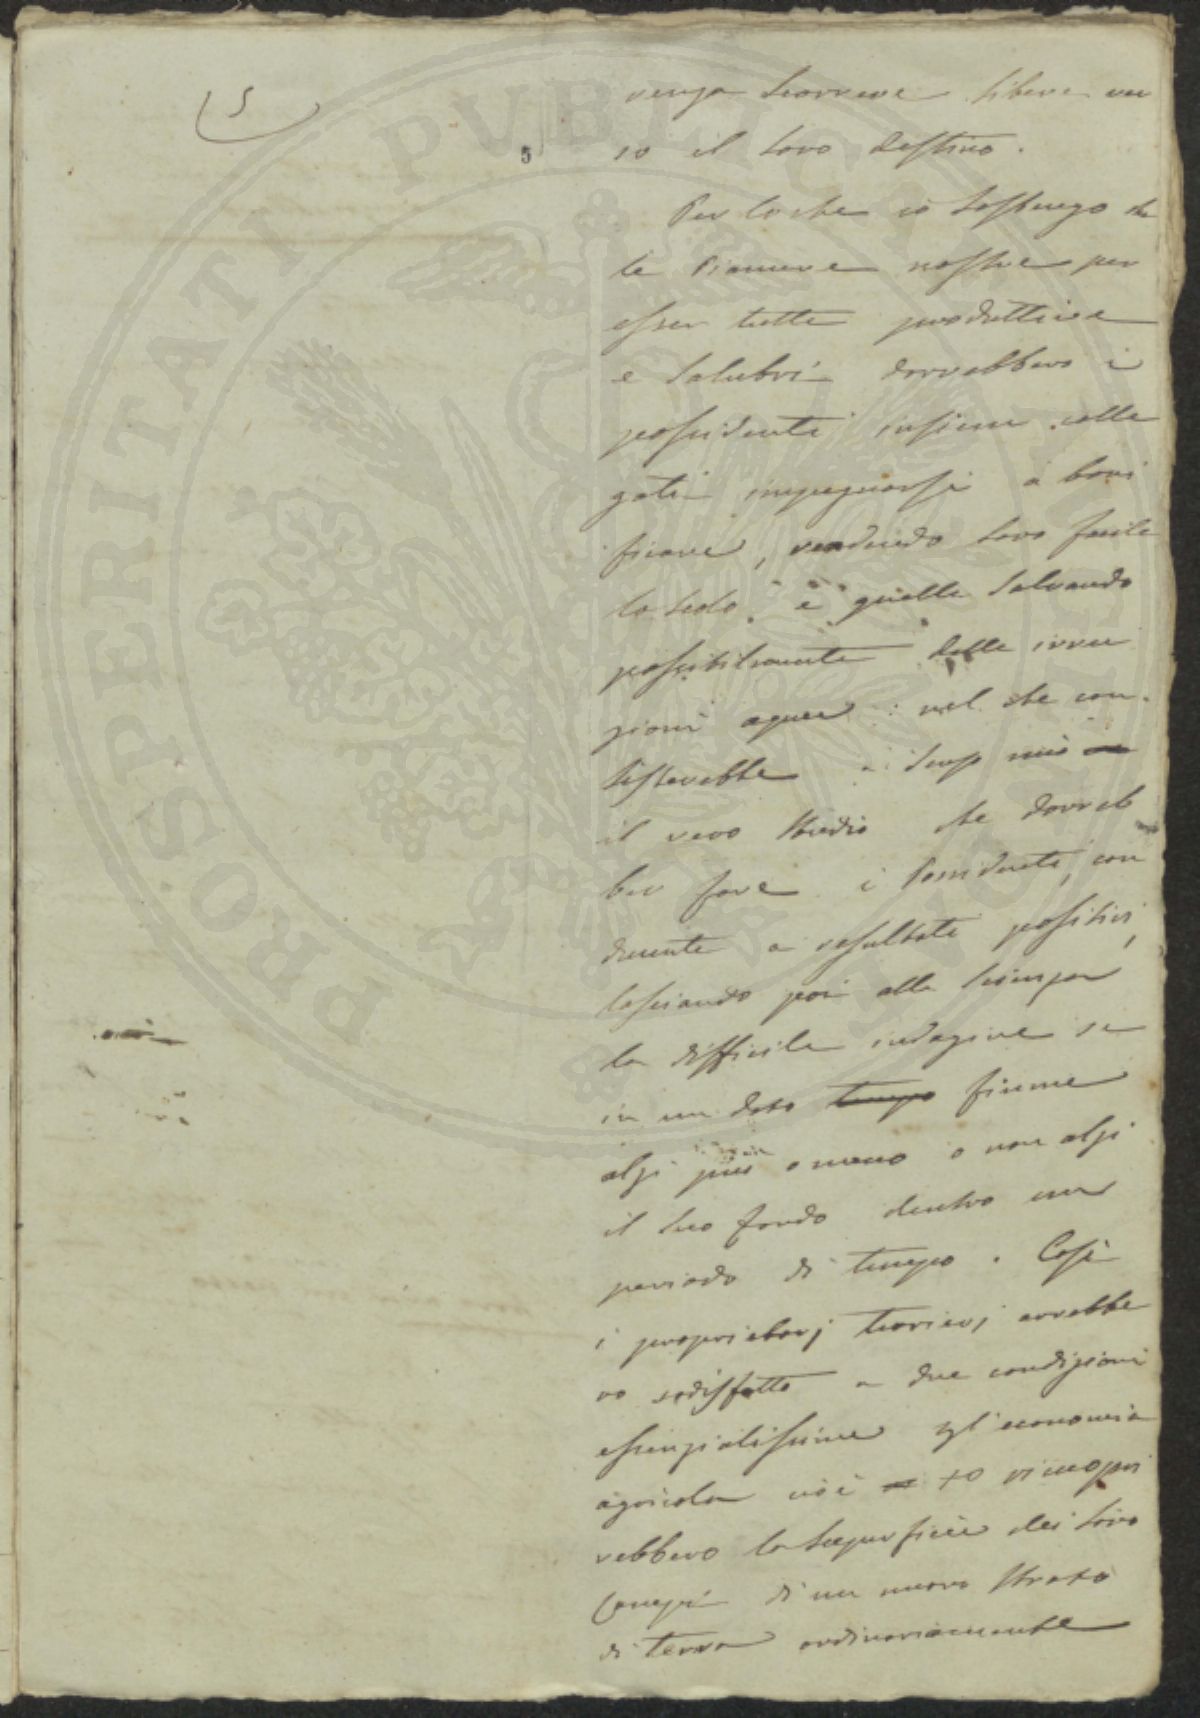 5
5
venga scorrere libere ver
so il loro destino.
Per lo che io sostengo che
le Pianure nostre per
esser tutte produttive
e salubri dovrebbero i
possidenti insieme colle
gati impegnarsi a boni
ficare, rendendo loro facile
lo scolo, e quelle salvando
possibilmente dalle irru
zioni acquee: nel che con
sisterebbe a senso mio
il vero studio che dovreb
ber fare i Possidenti, con
ducente a resultati positivi,
lasciando poi alla scienza
la difficile indagine se
in un dato tempo fiume
alzi più o meno o non alzi
il suo fondo dentro un
periodo di tempo. Così
i proprietarj terrieri avrebbe
ro sodisfatto a due condizioni
essenzialissime dell'economia
agricola cioè ricopri
rebbero la superficie dei loro
Campi di un nuovo strato
di terra ordinariamente
PROSPERITATI PUBLICAE AUGENDAE